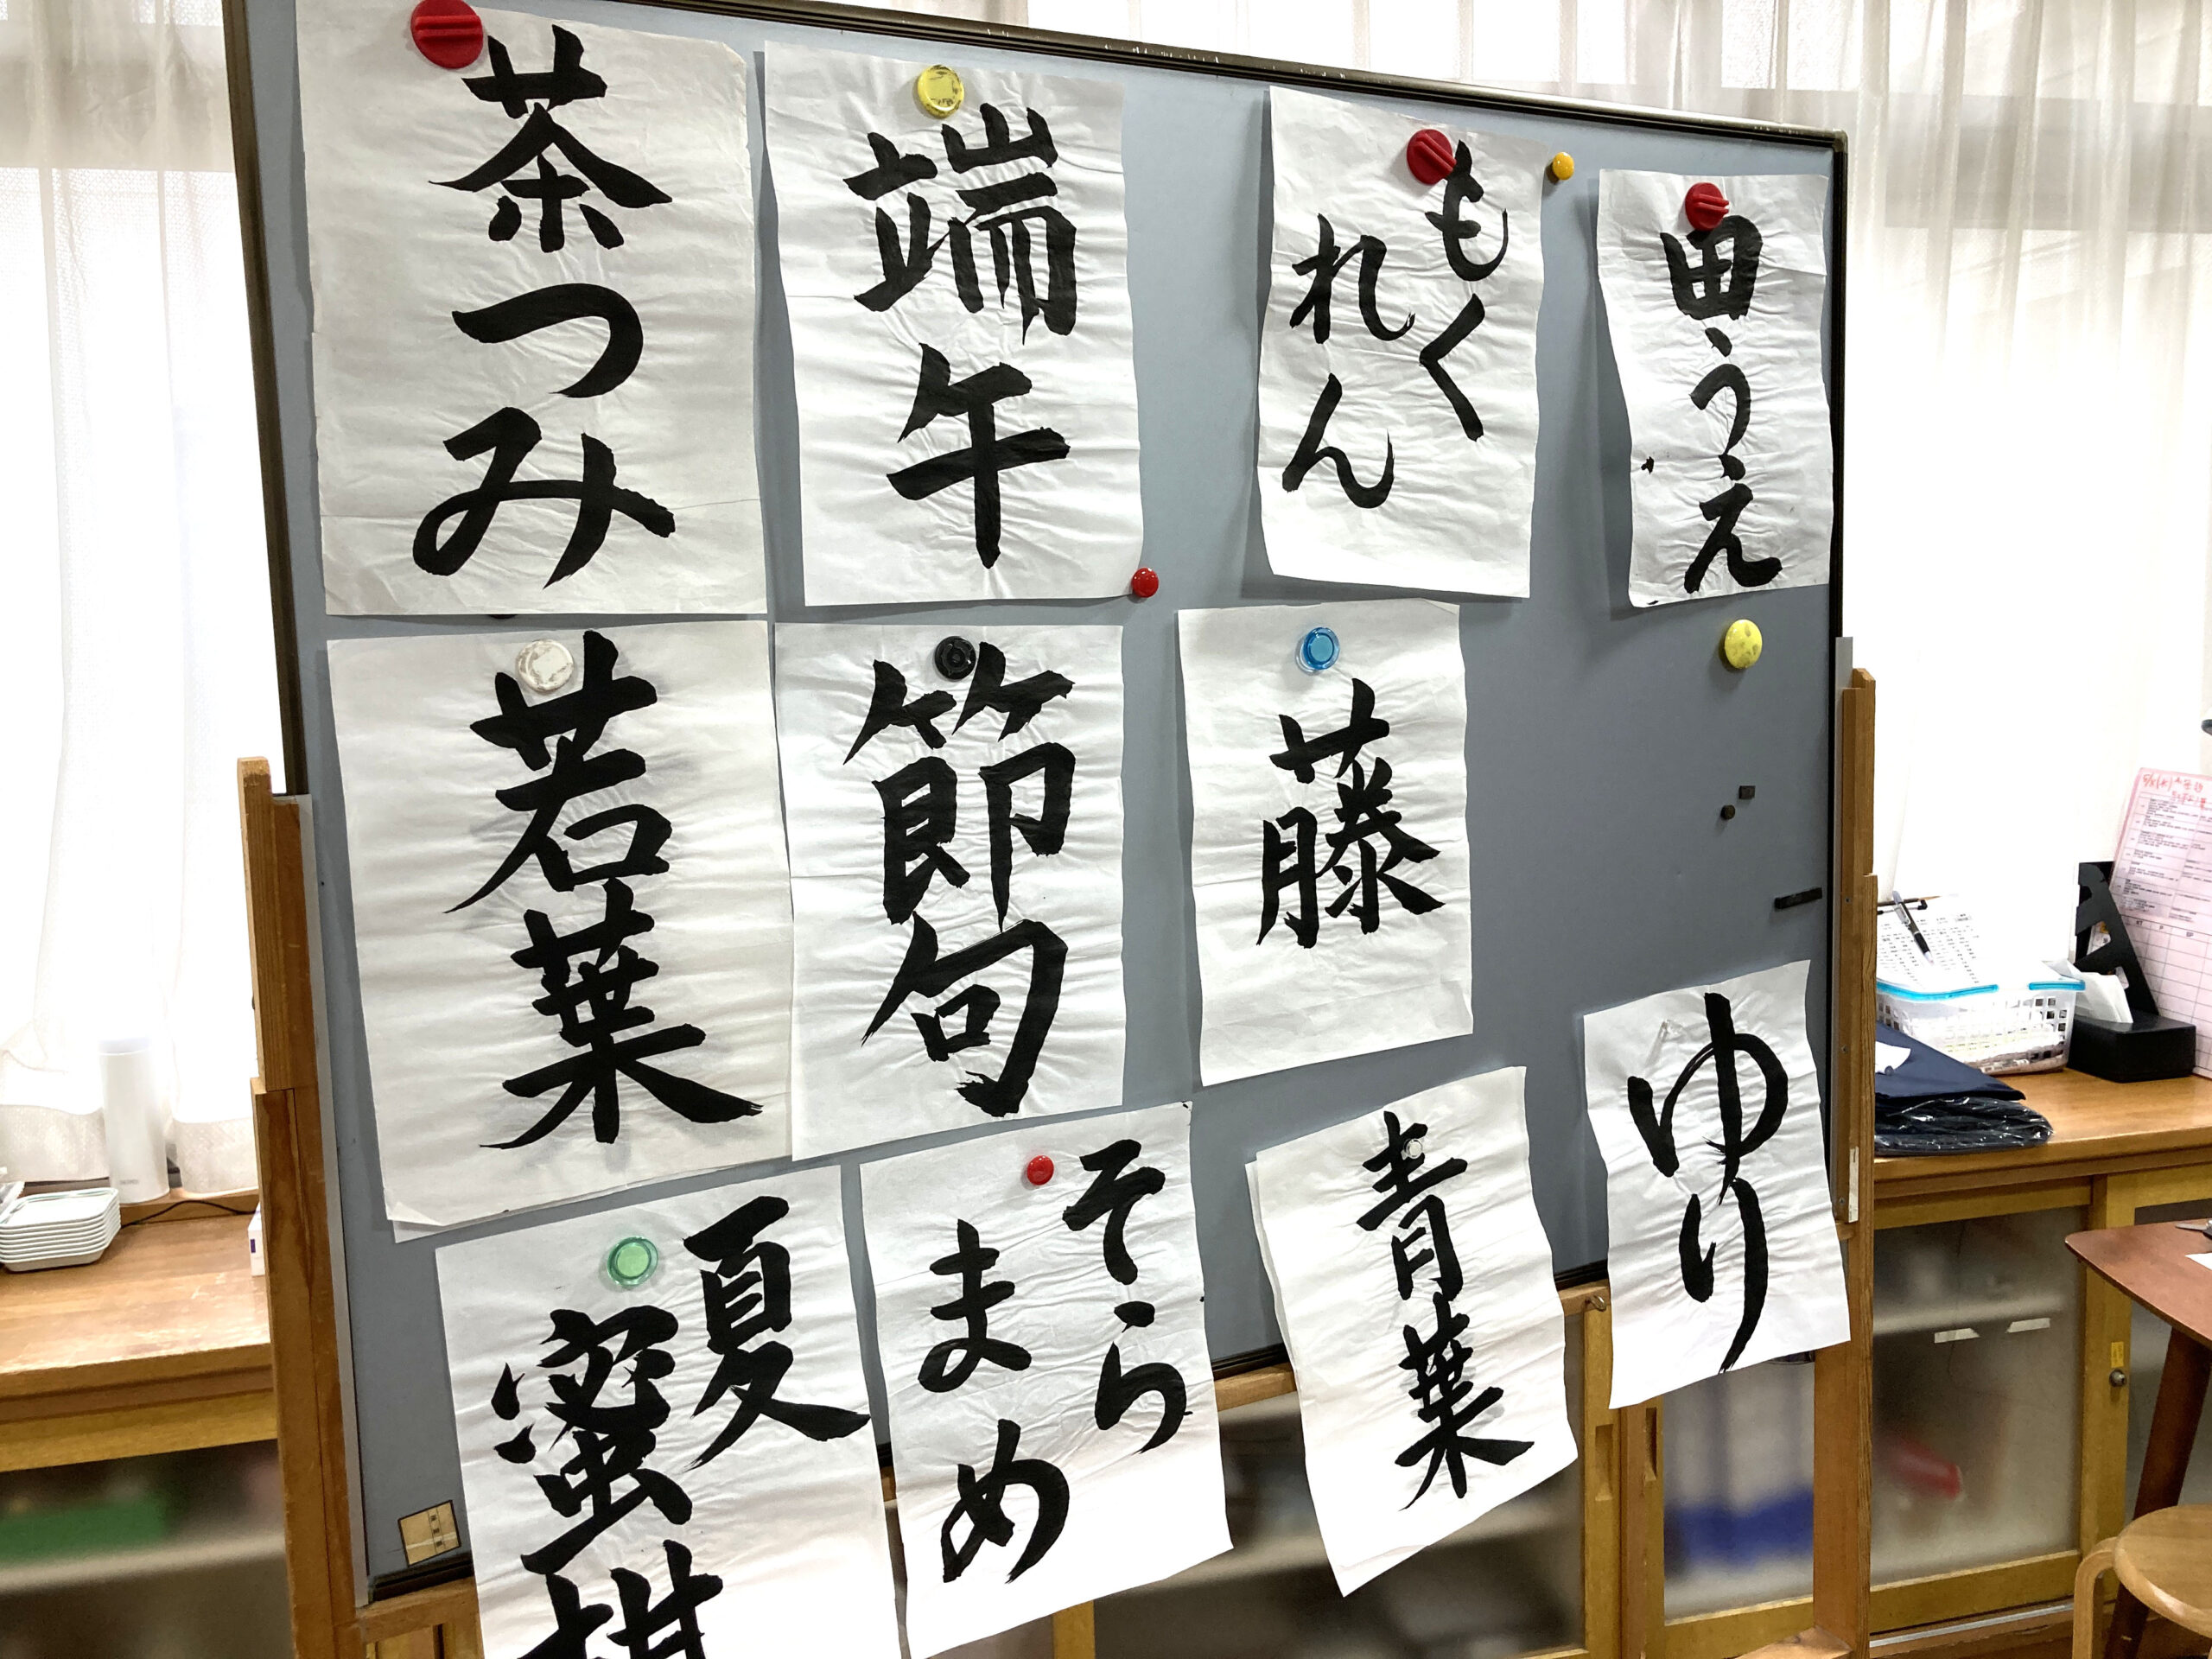 茶つみ
端午
もく
れん
田うえ
若葉
節句
藤
ゆり
夏
蜜柑
そら
まめ
青葉